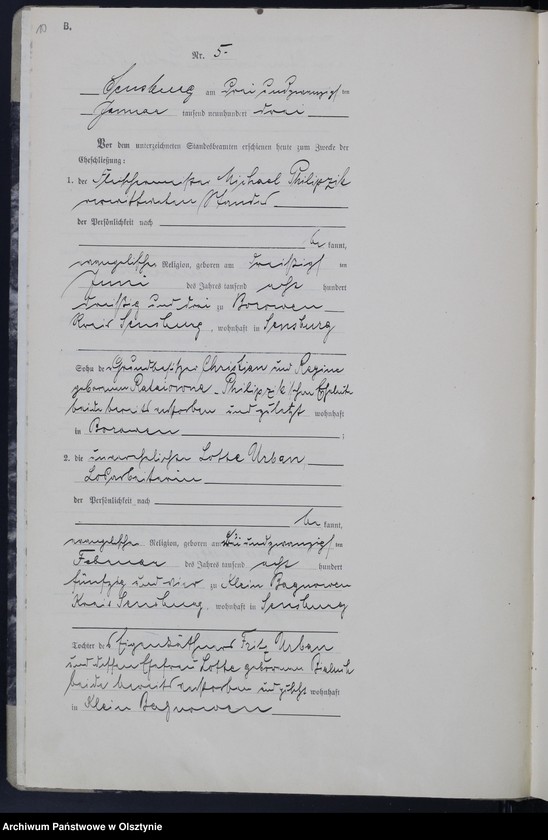 10
B.
Nr. 5.
Sensburg am drei und zwanzigsten
Januar tausend neunhundert drei
Vor dem unterzeichneten Standesbeamten erschienen heute zum Zwecke der
Eheschließung:
1. der Michael Philipzik
verwittweten Standes
der Persönlichkeit nach
be kannt,
evangelischer Religion, geboren am dreißigsten
Juni des Jahres tausend acht hundert
dreißig und drei zu Borowen
Kreis Sensburg, wohnhaft in Sensburg
Sohn des Grundbesitzer Christian und Regine
geborenen Philipzik'schen Eheleute
beide bereits verstorben und zuletzt wohnhaft
in Borowen ;
2. die unverehelichten Lotte Urban,
Losarbeiterin
der Persönlichkeit nach
be kannt,
evangelischer Religion, geboren am und zwanzigsten
Februar des Jahres tausend acht hundert
fünfzig und vier zu Klein Bagnowen
Kreis Sensburg, wohnhaft in Sensburg
Tochter des Eigenkäthners Fritz Urban
und dessen Ehefrau Lotte geborenen
beide bereits verstorben und zuletzt wohnhaft
in Klein Bagnowen
Archiwum Państwowe w Olsztynie